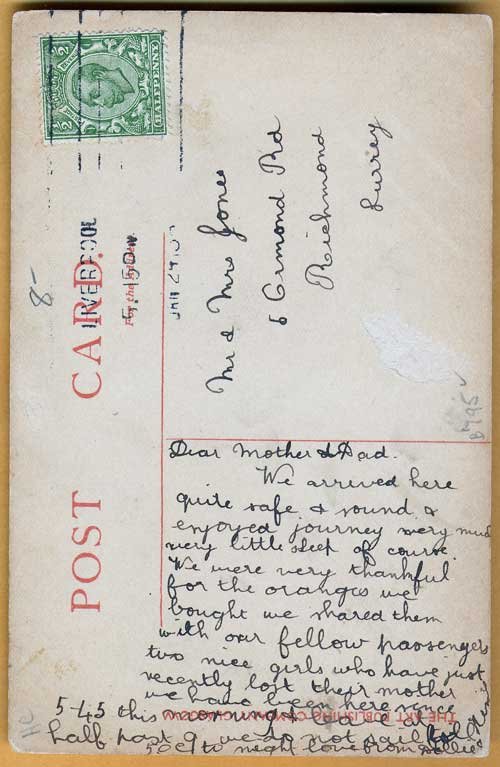 ½ POSTAGE REVENUE ½
HALFPENNY
LIVERPOOL
5.15
JAN 29
POST CARD.
For the
8-
Mr & Mrs Jones
6 Ormond Rd
Richmond
Surrey
B795
Dear Mother & Dad.
We arrived here
quite safe & sound &
enjoyed journey very much
very little sleep of course.
We were very thankful
for the oranges we
bought we shared them
with our fellow passengers
two nice girls who have just
recently lost their mother
we have been here since
5-45 this morning & it is now
half past 9 we do not sail
to night love from Nellie
THE ART PUBLISHING COMPANY GLASGOW